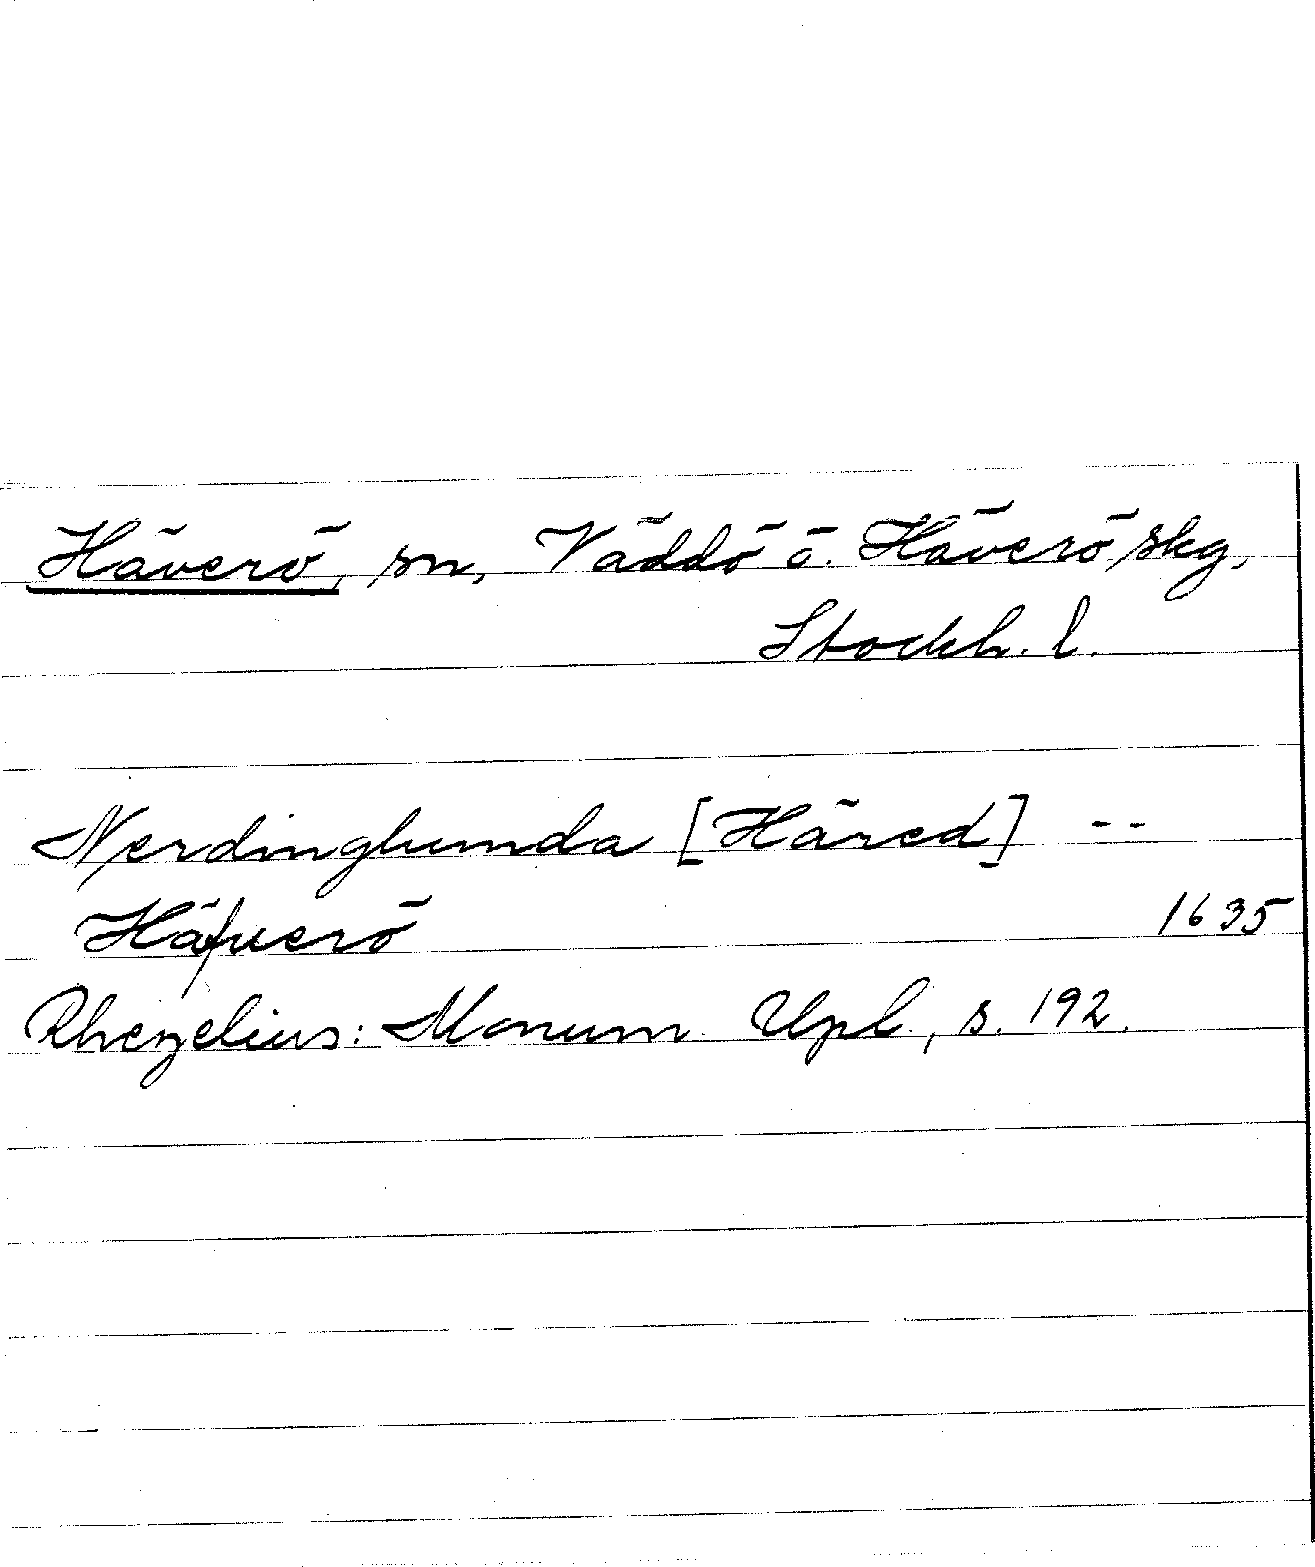 Häverö, sn, Väddö ö. Häverö skg,
Stockh. l.
Nerdinghunda [Häred] --
Häfuerö 1635
Rhezelius: Monum. Upl., s. 192.